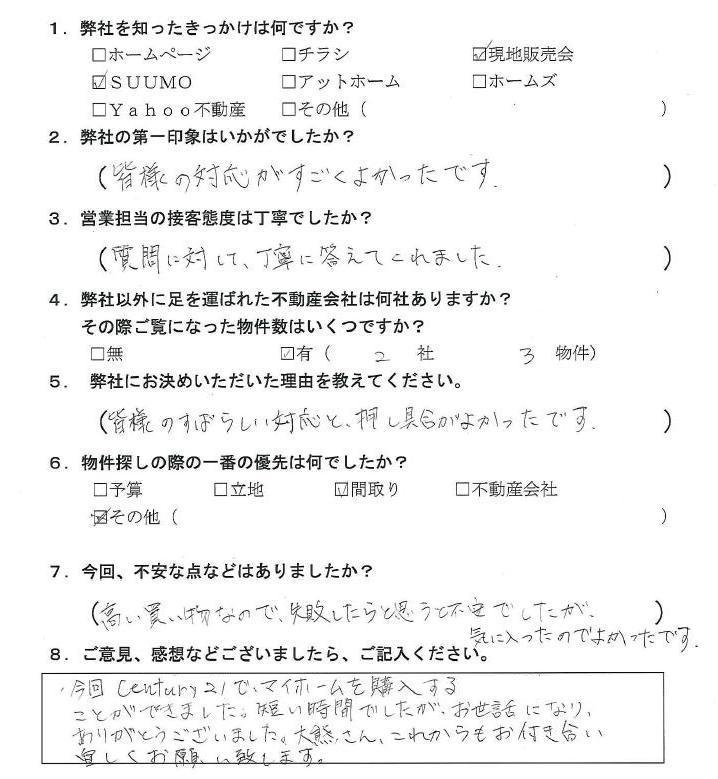 1．弊社を知ったきっかけは何ですか？
□ホームページ　□チラシ　☑現地販売会
☑ＳＵＵＭＯ　□アットホーム　□ホームズ
□Ｙａｈｏｏ不動産　□その他（　）
2．弊社の第一印象はいかがでしたか？
（皆様の対応がすごくよかったです.）
3．営業担当の接客態度は丁寧でしたか？
（質問に対して、丁寧に答えてくれました.）
4．弊社以外に足を運ばれた不動産会社は何社ありますか？
その際ご覧になった物件数はいくつですか？
□無　☑有（　2　社　3　物件）
5．弊社にお決めいただいた理由を教えてください。
（皆様のすばらしい対応と、押し具合がよかったです.）
6．物件探しの際の一番の優先は何でしたか？
□予算　□立地　☑間取り　□不動産会社
☑その他（　）
7．今回、不安な点などはありましたか？
（高い買い物なので、失敗したらと思うと不安でしたが、）
気に入ったのでよかったです.
8．ご意見、感想などございましたら、ご記入ください。
・今回 Century21で、マイホームを購入する
ことができました。短い時間でしたが、お世話になり、
ありがとうございました。大熊さん、これからもお付き合い
宜しくお願い致します。